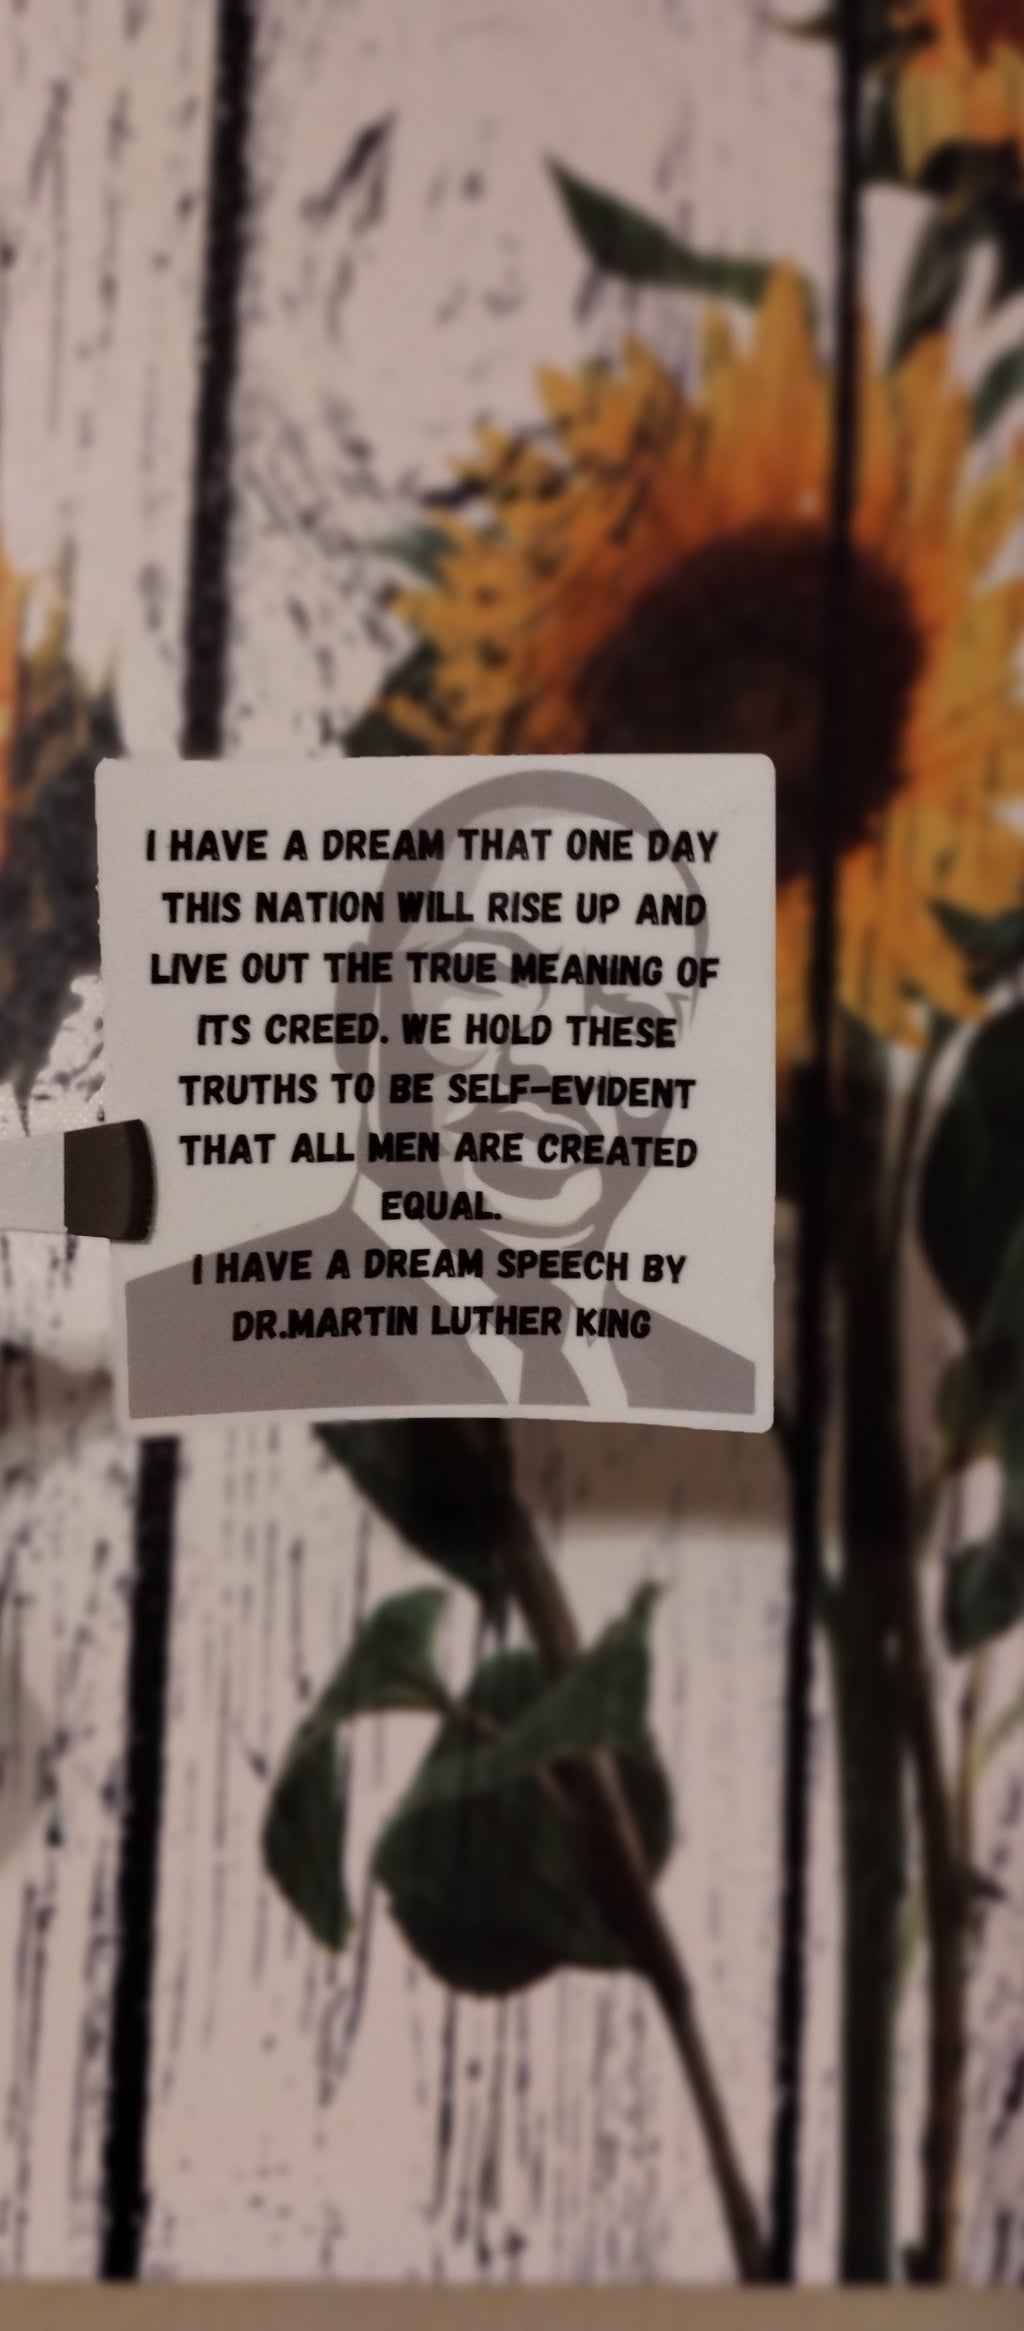 I HAVE A DREAM THAT ONE DAY
THIS NATION WILL RISE UP AND
LIVE OUT THE TRUE MEANING OF
ITS CREED. WE HOLD THESE
TRUTHS TO BE SELF-EVIDENT
THAT ALL MEN ARE CREATED
EQUAL.
I HAVE A DREAM SPEECH BY
DR.MARTIN LUTHER KING